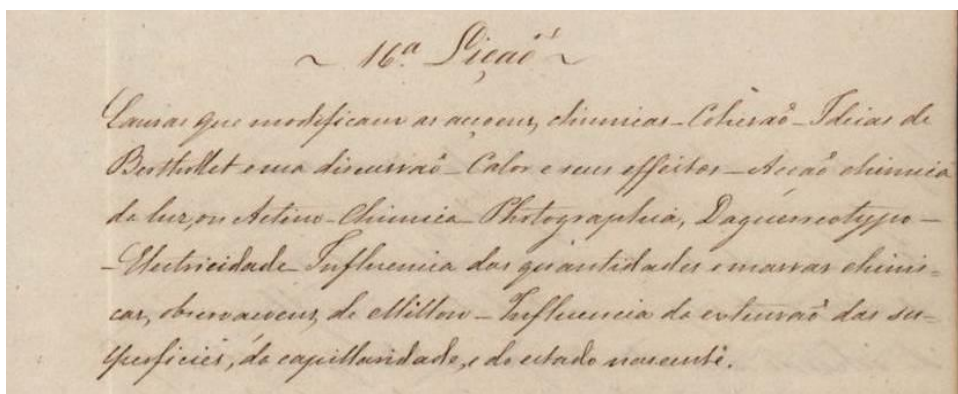 ~ 16.a Liçaõ ~
Causas que modificam as acçoens chimicas _ Cohesaõ _ Ideias de
Berthollet e sua discussaõ _ Calor e seus effeitos _ Acçaõ chimica
da luz, ou Actino-Chimica _ Photographia, Daguerreotypo _
_ Electricidade _ Influencia das quantidades e massas chimi=
cas, observaçoens de Millon _ Influencia da extensaõ das su=
perficies, da capillaridade, e do estado nascente.